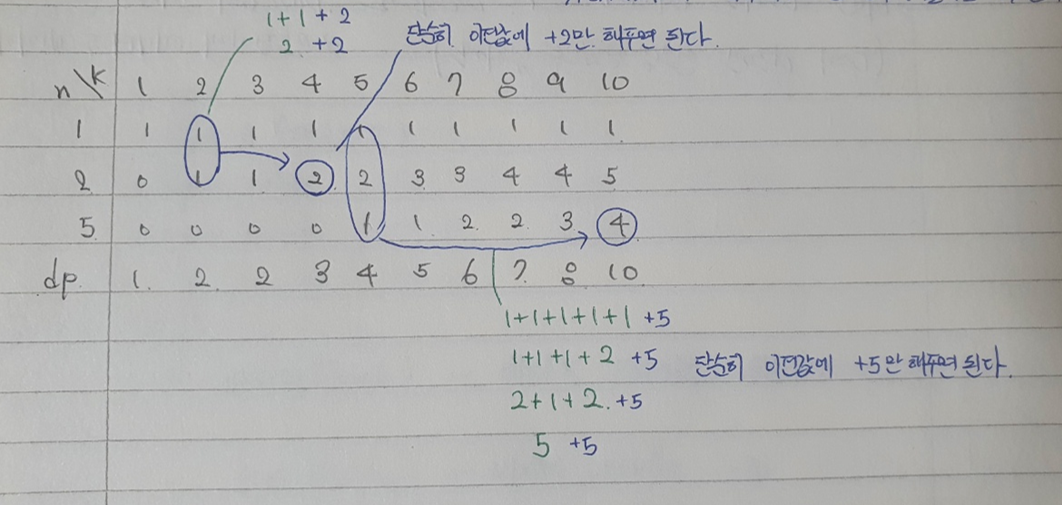 1+1+2
2 +2
단순히 이전값에 +2만 해주면 된다.
n\k 1 2 3 4 5 6 7 8 9 10
1 1 1 1 1 1 1 1 1 1 1
2 0 1 1 2 2 3 3 4 4 5
5 0 0 0 0 1 1 2 2 3 4
dp 1 2 2 3 4 5 6 7 8 10
1+1+1+1+1 +5
1+1+1+2 +5 단순히 이전값에 +5만 해주면 된다.
2+1+2 +5
5 +5